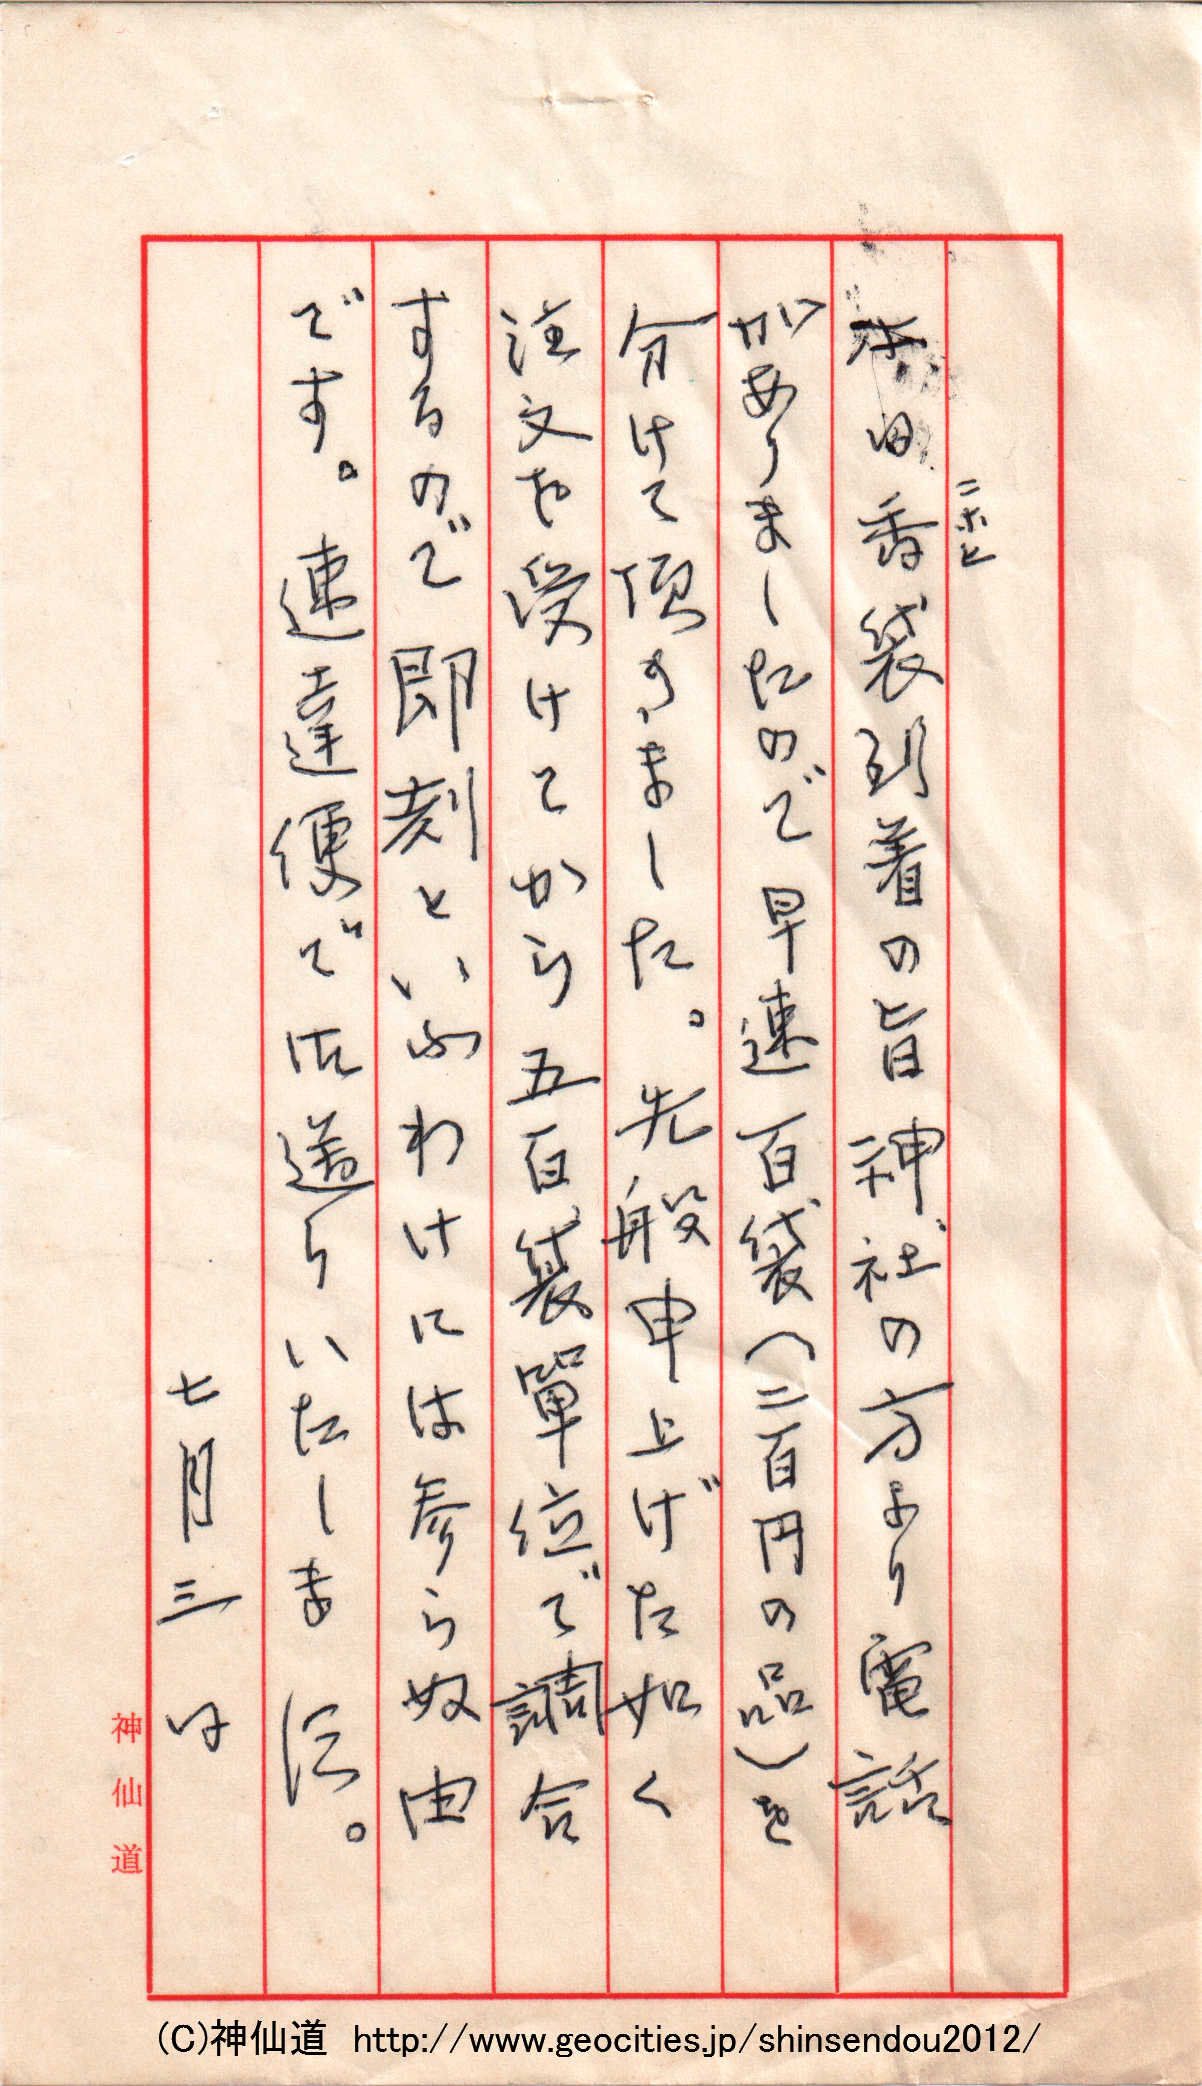 本日香袋到着の旨神社の方より電話
ニホヒ
がありましたので早速百袋(二百円の品)を
分けて頂きました。先般申上げた如く
注文を受けてから五百袋單位で調合
するので即刻といふわけには参らぬ由
です。速達便で御送りいたします。
七月三日
神仙道
(C)神仙道 http://www.geocities.jp/shinsendou2012/